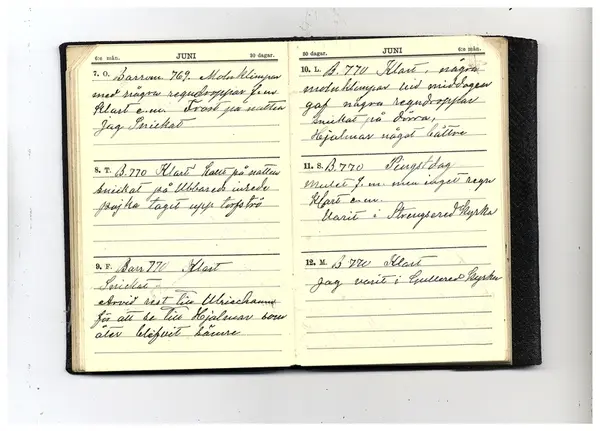 6:e mån. JUNI 30 dagar.
7. O. Barrom. 769. Molnklimpar
med några regndroppar f.m.
Klart e.m. Frost på natten
jag Snickat
8. T. B. 770 Klart kallt på natten
snickat på Ubbared inrede
pojka taget upp torfströ
9. F. Barr 770 Klart
Snickat
Arvid rest till Ulricehamn
för att se till Hjalmar som
åter blifvit sämre
30 dagar. JUNI 6:e mån.
10. L. B. 770 Klart, några
molnklimpar vid middagen
gaf några regndroppar
snickat på dörra,
Hjalmar något bättre
11. S. B. 770 Pingstdag
Mulet f.m. men inget regn
Klart e.m.
Varit i Strengsered Kyrka
12. M. B 770 Klart
Jag varit i Gullered Kyrka